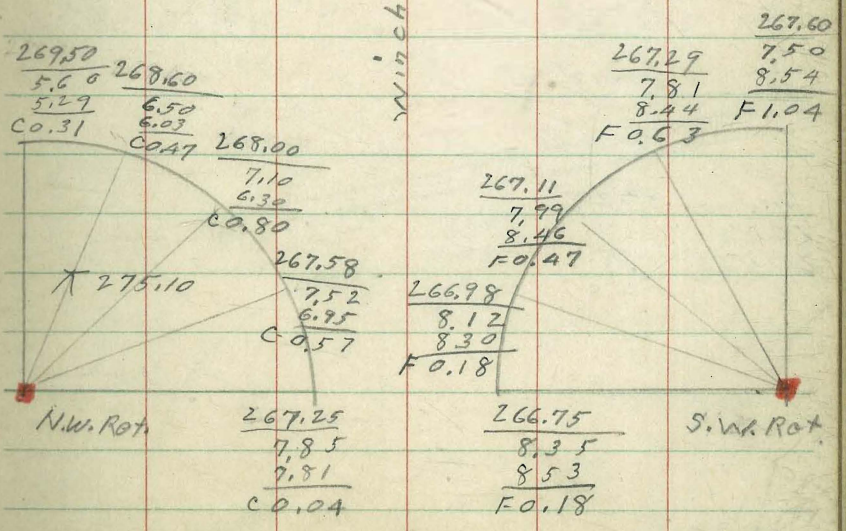 269.50
5.60
5.29
C0.31
268.60
6.50
6.03
C0.47
268.00
7.10
6.30
C0.80
267.58
7.52
6.95
C0.57
267.25
7.85
7.81
C0.04
275.10
N.W. Rot.
Winch
267.60
7.50
8.54
F1.04
267.29
7.81
8.44
F0.63
267.11
7.99
8.46
F0.47
266.98
8.12
8.30
F0.18
266.75
8.35
8.53
F0.18
S.W. Rot.